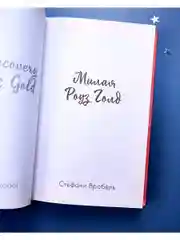 Gold
Милая
Роуз Голд
Стефани Вробель